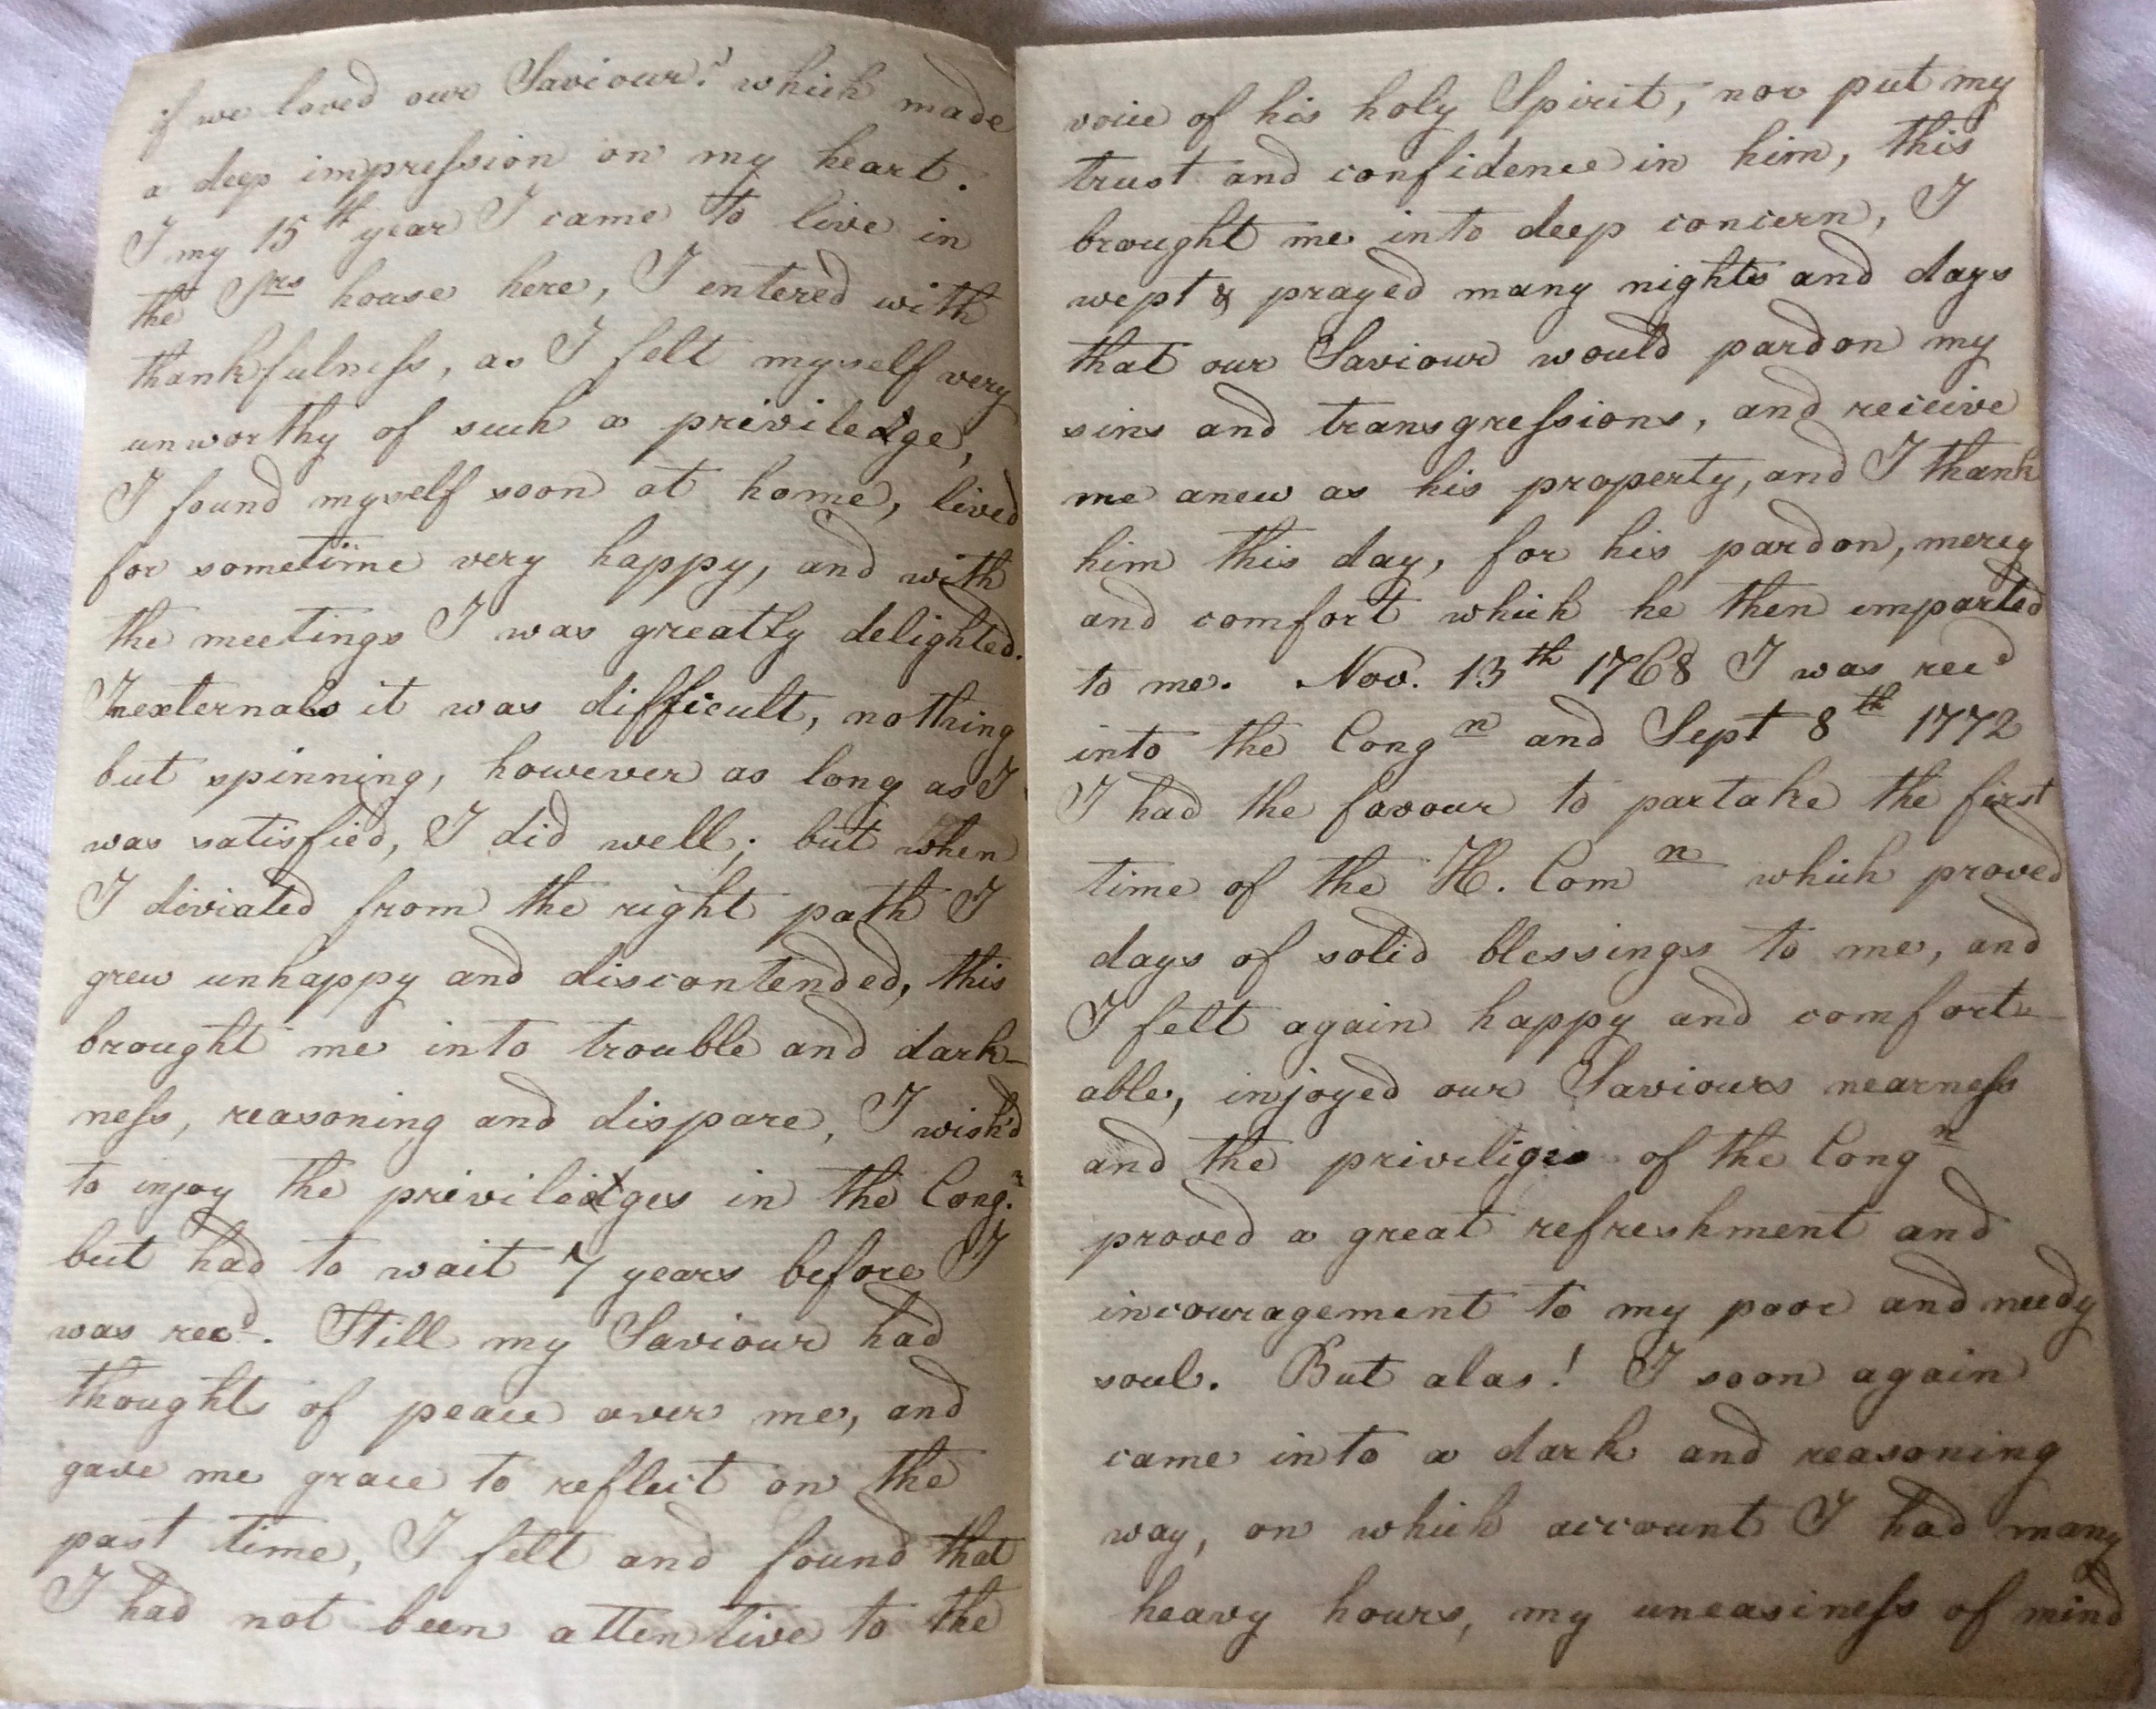 if we loved our Saviour? which made
a deep impression on my heart.
I my 15th year I came to live in
the Srs house here, I entered with
thankfulness, as I felt myself very
unworthy of such a priviledge,
I found myself soon at home, lived
for sometime very happy, and with
the meetings I was greatly delighted.
In externals it was difficult, nothing
but spinning, however as long as I
was satisfied, I did well; but when
I diviated from the right path I
grew unhappy and discontended, this
brought me into trouble and dark-
ness, reasoning and dispare, I wish'd
to injoy the priviledges in the Congn
but had to wait 7 years before I
was recd. Still my Saviour had
thoughts of peace over me, and
gave me grace to reflect on the
past time, I felt and found that
I had not been attentive to the
voice of his holy Spirit, nor put my
trust and confidence in him, this
brought me into deep concern, I
wept & prayed many nights and days
that our Saviour would pardon my
sins and transgressions, and receive
me anew as his property, and I thank
him this day, for his pardon, mercy
and comfort which he then imparted
to me. Nov. 13th 1768 I was recd
into the Congn and Sept 8th 1772
I had the favour to partake the first
time of the H. Comn which proved
days of solid blessings to me, and
I felt again happy and comfort-
able, injoyed our Saviours nearness
and the priviliges of the Congn
proved a great refreshment and
incouragement to my poor and needy
soul. But alas! I soon again
came into a dark and reasoning
way, on which account I had many
heavy hours, my uneasiness of mind